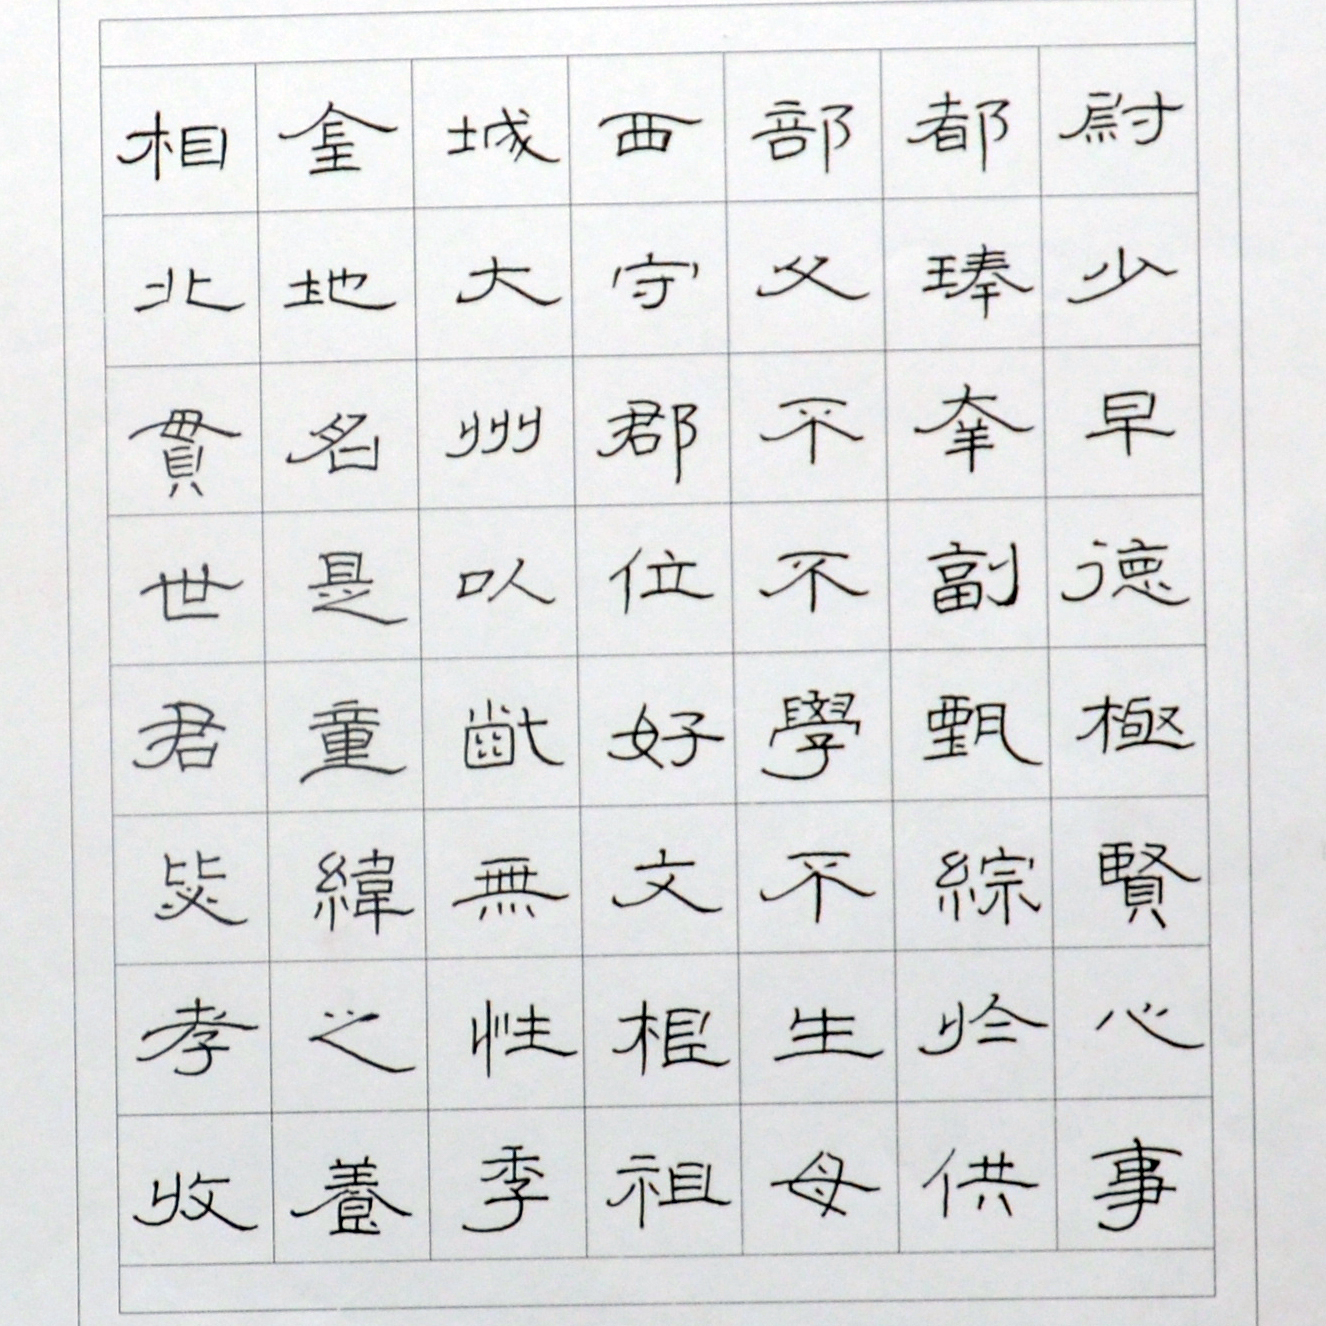 相金城西部都尉
北地大守父琫少
貫名州郡不幸早
世是以位不副德
君童齔好學甄極
毖緯無文不綜賢
孝之性根生於心
收養季祖母供事